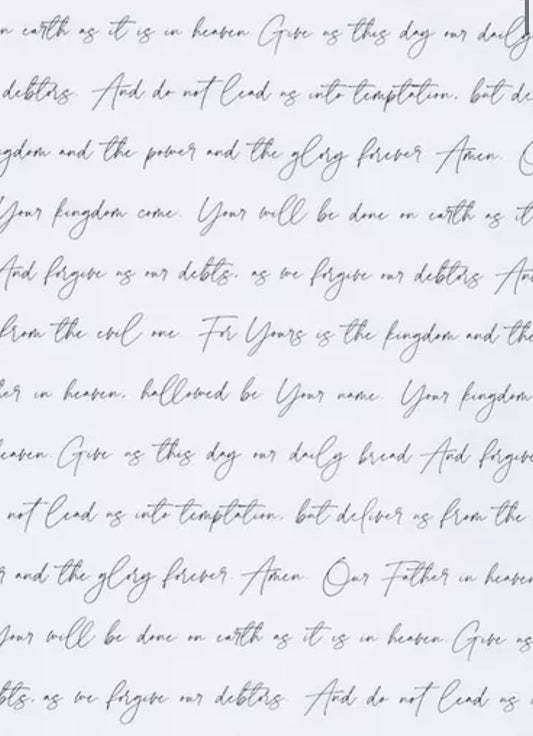 n earth as it is in heaven Give us this day our daily
debtors. And do not lead us into temptation, but de
gdom and the power and the glory forever Amen. O
Your kingdom come. Your will be done on earth as it
And forgive us our debts, as we forgive our debtors And
from the evil one. For Yours is the kingdom and the
her in heaven, hallowed be Your name. Your kingdom
eaven. Give us this day our daily bread And forgive
not lead us into temptation, but deliver us from the
r and the glory forever. Amen. Our Father in heaven
Your will be done on earth as it is in heaven. Give us
bts, as we forgive our debtors. And do not lead us i